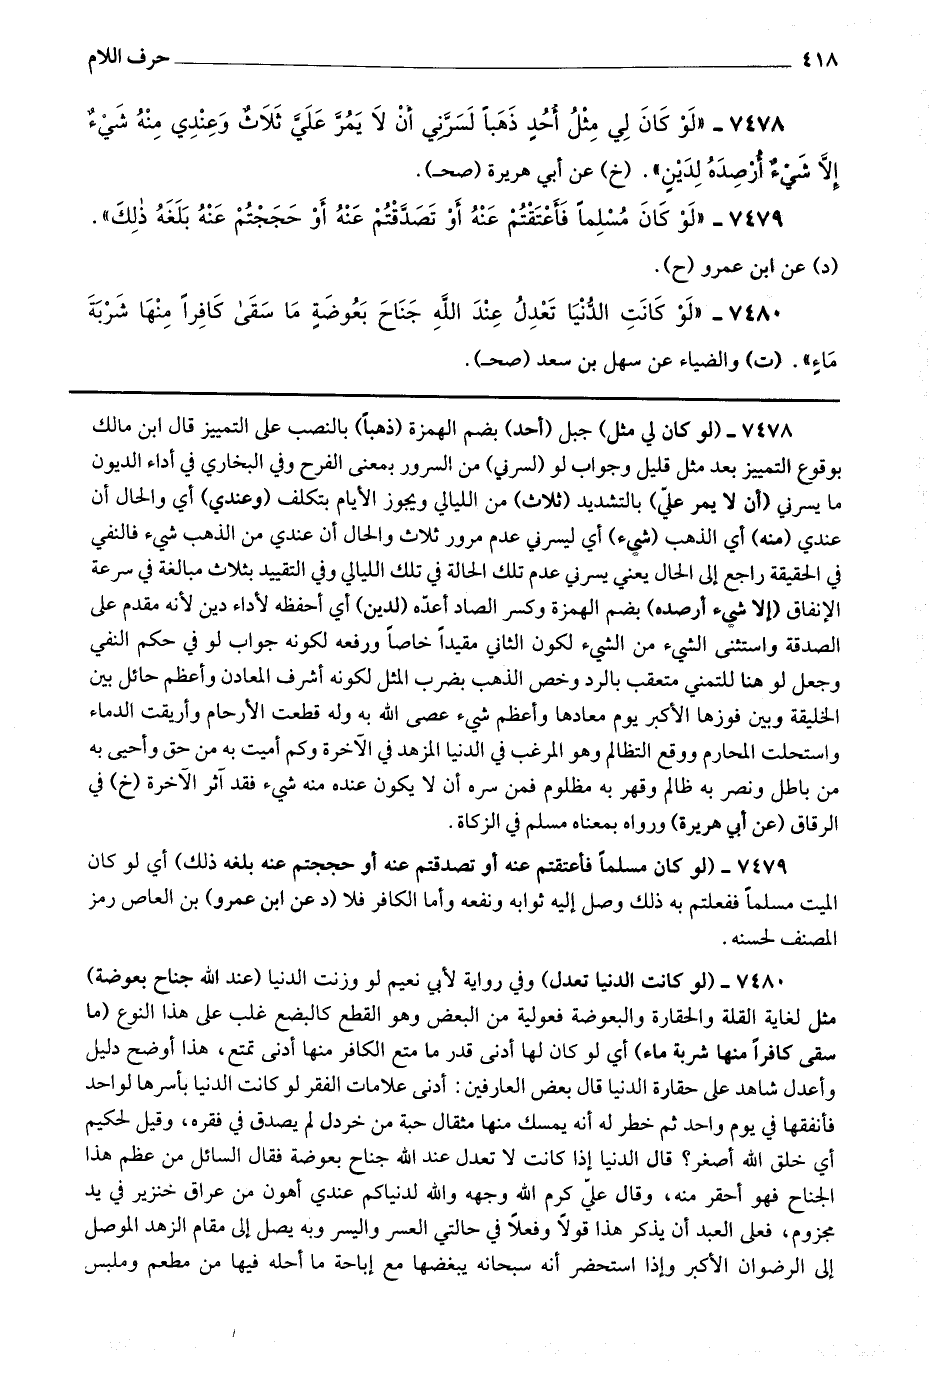 ٤١٨ ــــــــــــــــــــــــــــــــــــــــــــــــــــــــ حرف اللام
٧٤٧٨ ـ «لَوْ كَانَ لِي مِثْلُ أُحُدٍ ذَهَباً لَسَرَّنِي أَنْ لَا يَمُرَّ عَلَيَّ ثَلَاثٌ وَعِنْدِي مِنْهُ شَيْءٌ
إِلَّا شَيْءٌ أُرْصِدُهُ لِدَيْنٍ». (خ) عن أبي هريرة (صحـ).
٧٤٧٩ ـ «لَوْ كَانَ مُسْلِماً فَأَعْتَقْتُمْ عَنْهُ أَوْ تَصَدَّقْتُمْ عَنْهُ أَوْ حَجَجْتُمْ عَنْهُ بَلَغَهُ ذٰلِكَ».
(د) عن ابن عمرو (ح).
٧٤٨٠ ـ «لَوْ كَانَتِ الدُّنْيَا تَعْدِلُ عِنْدَ اللَّهِ جَنَاحَ بَعُوضَةٍ مَا سَقَىٰ كَافِراً مِنْهَا شَرْبَةَ
مَاءٍ». (ت) والضياء عن سهل بن سعد (صحـ).
٧٤٧٨ ـ (لو كان لي مثل) جبل (أحد) بضم الهمزة (ذهباً) بالنصب على التمييز قال ابن مالك
بوقوع التمييز بعد مثل قليل وجواب لو (لسرني) من السرور بمعنى الفرح وفي البخاري في أداء الديون
ما يسرني (أن لا يمر عليّ) بالتشديد (ثلاث) من الليالي ويجوز الأيام بتكلف (وعندي) أي والحال أن
عندي (منه) أي الذهب (شيء) أي ليسرني عدم مرور ثلاث والحال أن عندي من الذهب شيء فالنفي
في الحقيقة راجع إلى الحال يعني يسرني عدم تلك الحالة في تلك الليالي وفي التقييد بثلاث مبالغة في سرعة
الإنفاق (إلا شيء أرصده) بضم الهمزة وكسر الصاد أعدّه (لدين) أي أحفظه لأداء دين لأنه مقدم على
الصدقة واستثنى الشيء من الشيء لكون الثاني مقيداً خاصاً ورفعه لكونه جواب لو في حكم النفي
وجعل لو هنا للتمني متعقب بالرد وخص الذهب بضرب المثل لكونه أشرف المعادن وأعظم حائل بين
الخليقة وبين فوزها الأكبر يوم معادها وأعظم شيء عصى الله به وله قطعت الأرحام وأريقت الدماء
واستحلت المحارم ووقع التظالم وهو المرغب في الدنيا المزهد في الآخرة وكم أميت به من حق وأحيى به
من باطل ونصر به ظالم وقهر به مظلوم فمن سره أن لا يكون عنده منه شيء فقد آثر الآخرة (خ) في
الرقاق (عن أبي هريرة) ورواه بمعناه مسلم في الزكاة.
٧٤٧٩ ـ (لو كان مسلماً فأعتقتم عنه أو تصدقتم عنه أو حججتم عنه بلغه ذلك) أي لو كان
الميت مسلماً ففعلتم به ذلك وصل إليه ثوابه ونفعه وأما الكافر فلا (د عن ابن عمرو) بن العاص رمز
المصنف لحسنه.
٧٤٨٠ ـ (لو كانت الدنيا تعدل) وفي رواية لأبي نعيم لو وزنت الدنيا (عند الله جناح بعوضة)
مثل لغاية القلة والحقارة والبعوضة فعولية من البعض وهو القطع كالبضع غلب على هذا النوع (ما
سقى كافراً منها شربة ماء) أي لو كان لها أدنى قدر ما متع الكافر منها أدنى تمتع، هذا أوضح دليل
وأعدل شاهد على حقارة الدنيا قال بعض العارفين: أدنى علامات الفقر لو كانت الدنيا بأسرها لواحد
فأنفقها في يوم واحد ثم خطر له أنه يمسك منها مثقال حبة من خردل لم يصدق في فقره، وقيل لحكيم
أي خلق الله أصغر؟ قال الدنيا إذا كانت لا تعدل عند الله جناح بعوضة فقال السائل من عظم هذا
الجناح فهو أحقر منه، وقال عليّ كرم الله وجهه والله لدنياكم عندي أهون من عراق خنزير في يد
مجزوم، فعلى العبد أن يذكر هذا قولاً وفعلاً في حالتي العسر واليسر وبه يصل إلى مقام الزهد الموصل
إلى الرضوان الأكبر وإذا استحضر أنه سبحانه يبغضها مع إباحة ما أحله فيها من مطعم وملبس